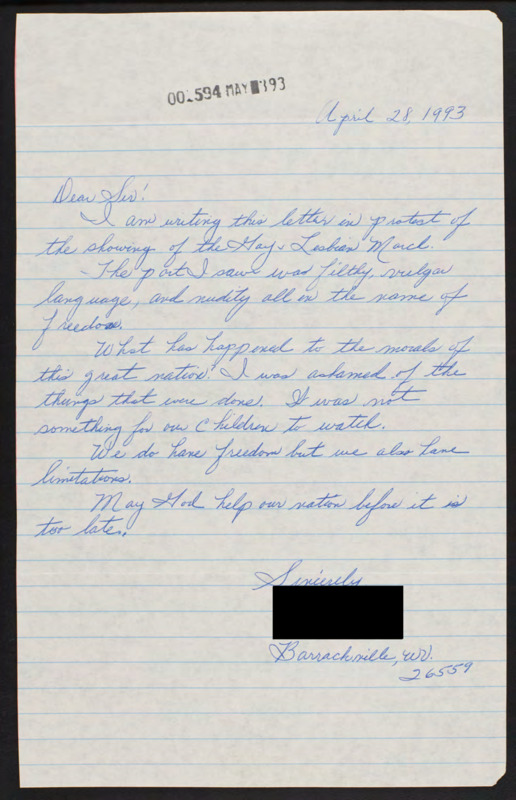 00.594 MAY 93
April 28, 1993
Dear Sir!
I am writing this letter in protest of
the showing of the Gay & Lesbian March.
The part I saw was filthy, vulgar
language, and nudity all in the name of
freedom.
What has happened to the morals of
this great nation? I was ashamed of the
things that were done. It was not
something for our children to watch.
We do have freedom but we also have
limitations.
May God help our nation before it is
too late.
Sincerely
Barrackville, WV.
26559